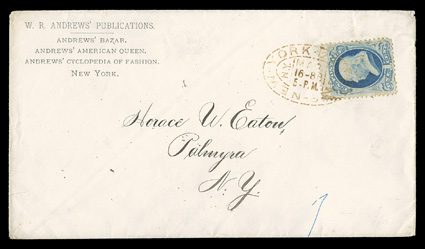 W. R. ANDREWS' PUBLICATIONS.
ANDREWS' BAZAR,
ANDREWS' AMERICAN QUEEN,
ANDREWS' CYCLOPEDIA OF FASHION.
NEW YORK.
YORK
16-8
5-P.M.
Horace W. Eaton,
Palmyra
N.Y.